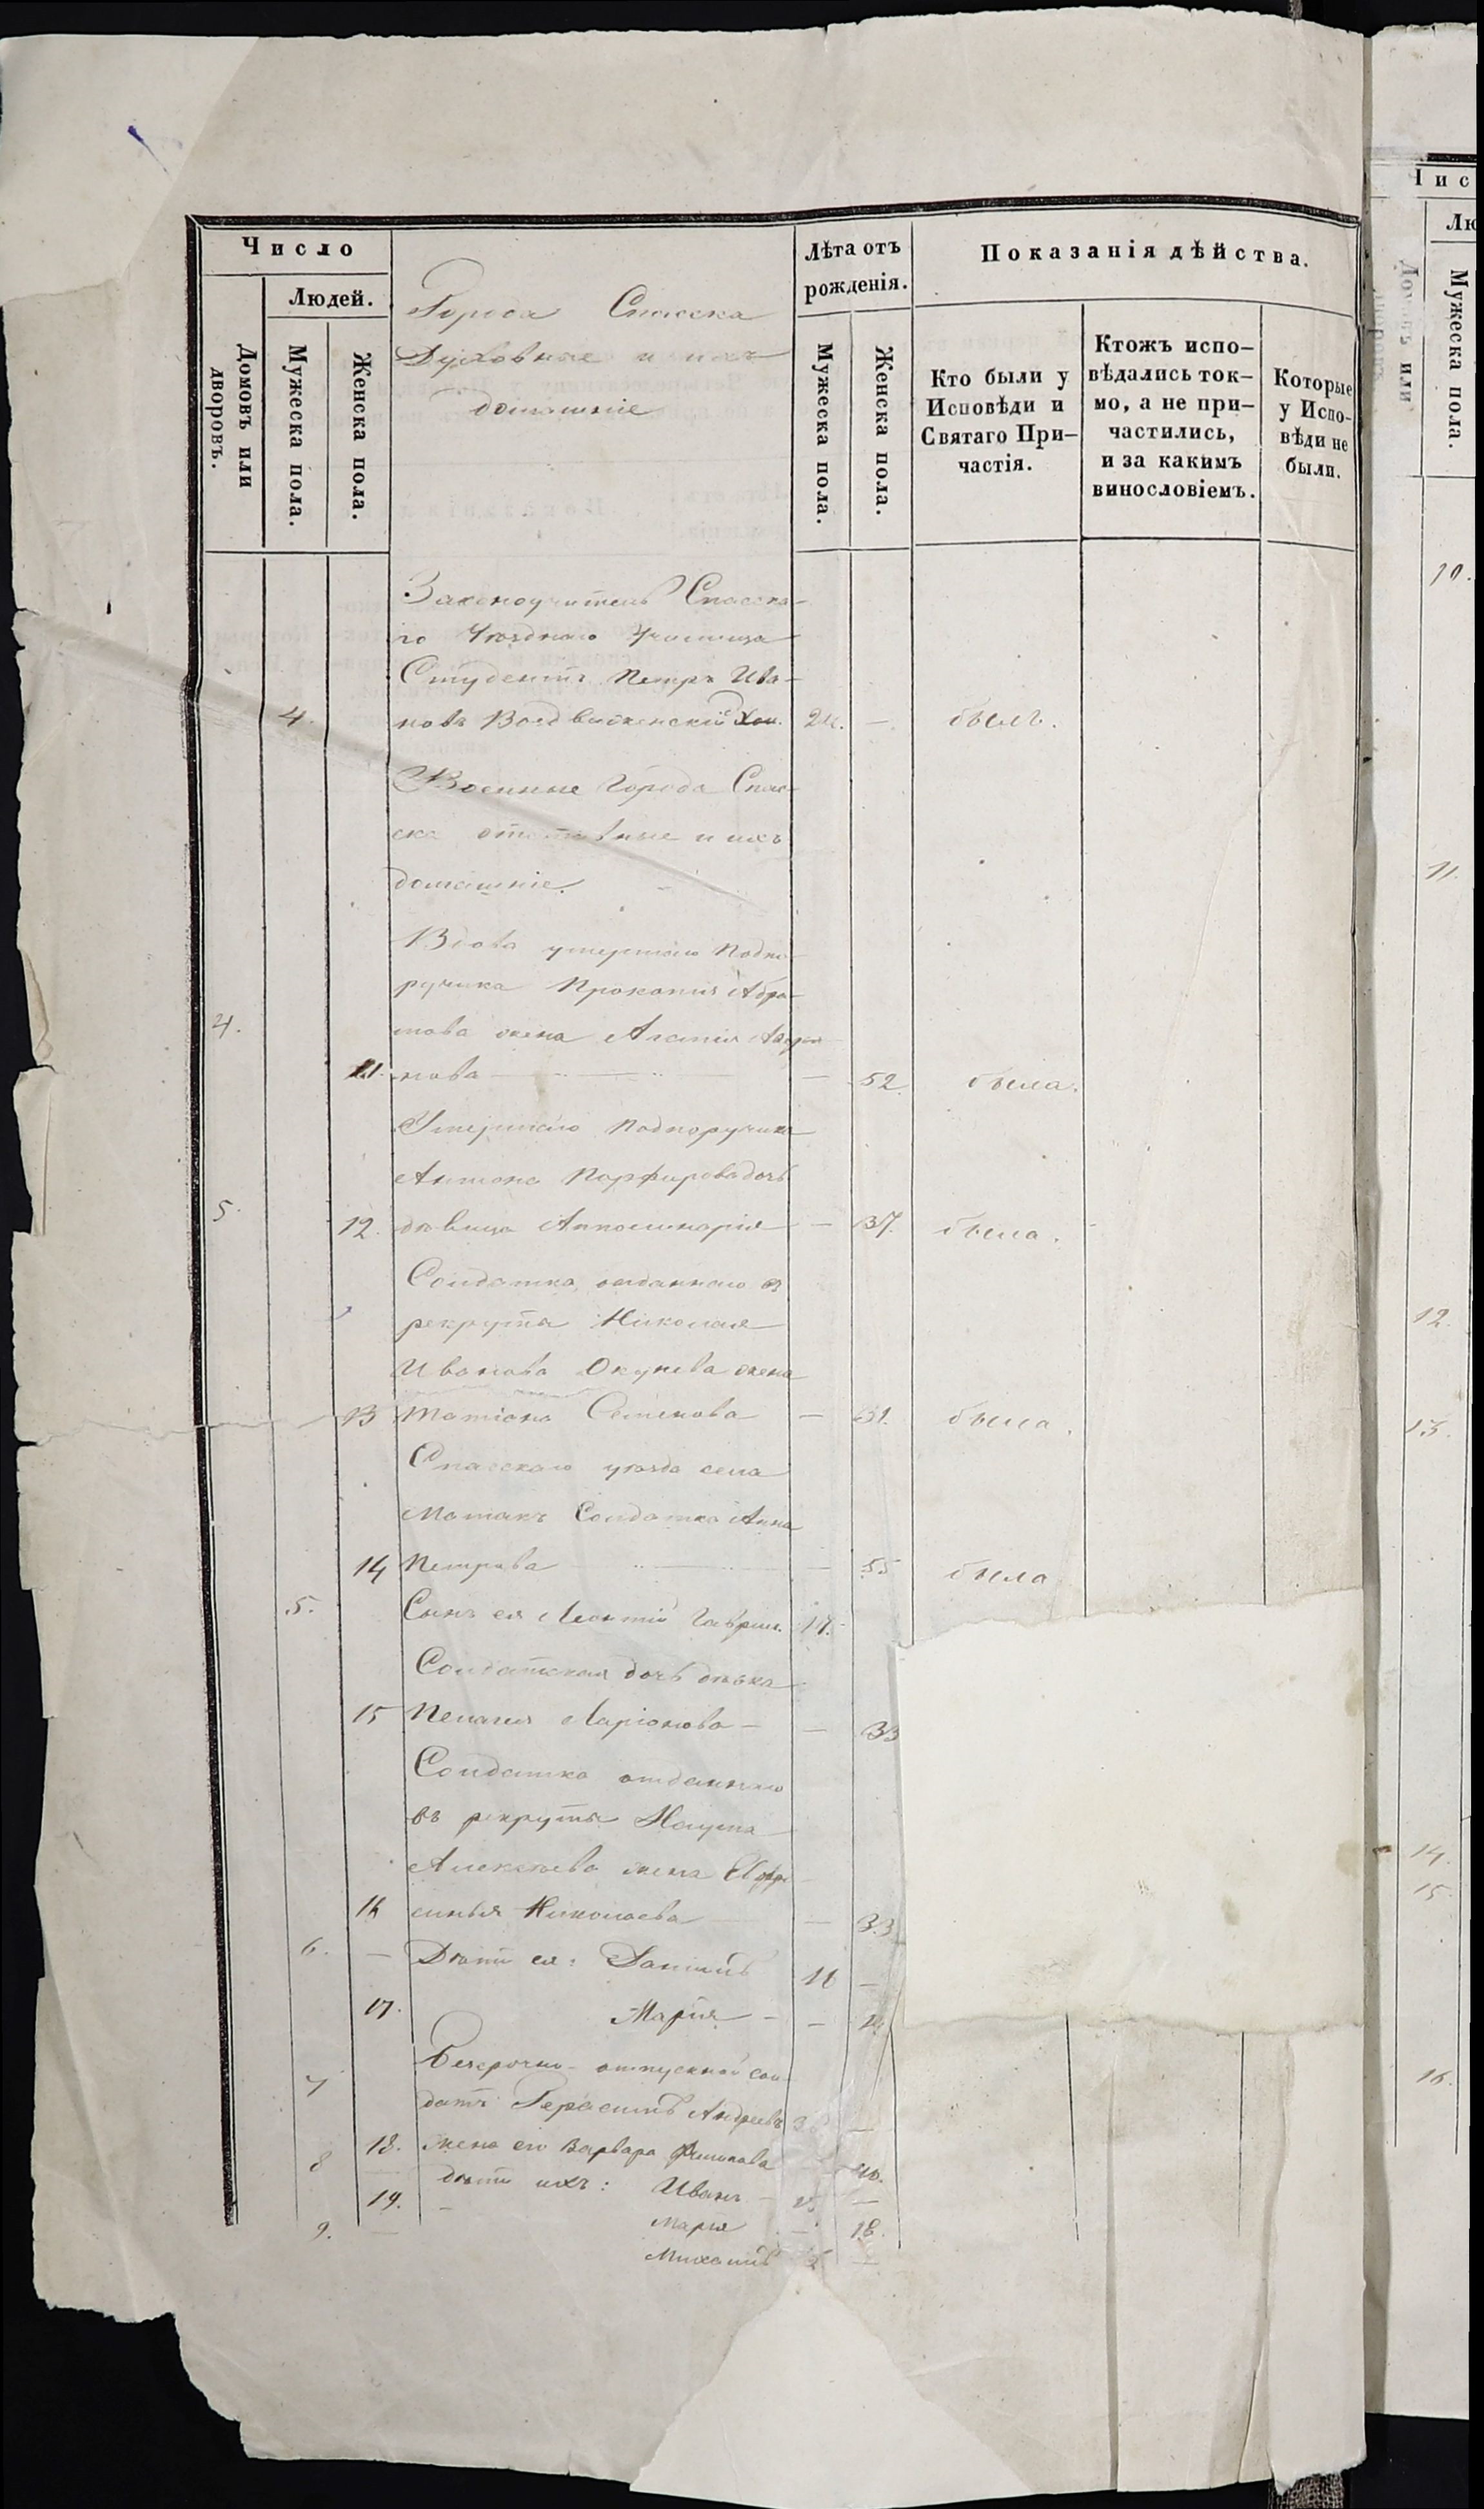 Число
Людей.
Домовъ или дворовъ.
Мужеска пола.
Женска пола.
Города Спасска
Духовные и ихъ
домашніе
Лѣта отъ
рожденія.
Мужеска пола.
Женска пола.
Показанія дѣйства.
Кто были у
Исповѣди и
Святаго При-
частія.
Ктожъ испо-
вѣдались ток-
мо, а не при-
частились,
и за какимъ
винословіемъ.
Которые
у Испо-
вѣди не
были.
Законоучитель Спасска-
го Уѣзднаго Училища
Студентъ Петръ Ива-
4. новъ Воздвиженскій 24. — былъ.
Военные Города Спас-
ска отставные и ихъ
домашніе.
Вдова умершаго Подпо-
ручика Прокопія Абра-
4. мова жена Агапія
11. нова — — 52. была.
Умершаго Подпоручика
Антона Порфирова дочь
5. 12. дѣвица Апполинарія — 37. была.
Солдатка, отданнаго в
рекруты Николая
Иванова Окунева жена
13 Татіана Семенова — 31. была.
Спасскаго уѣзда села
Матакъ Солдатка Анна
14 Петрова — 55 была
5. Сынъ ея Леонтій Гаврил. 17.
Солдатская дочь дѣвка
15 Пелагея Ларіонова — — 33
Солдатка отданнаго
въ рекруты Наума
Алексѣева жена Евфро
16 синья Николаева — 33
6. — Дѣти ея: Даніилъ 11 —
17. Марія — —
Безсрочно-отпускной сол-
7 датъ Герасимъ Андреевъ
18. жена его Варвара Филипова 40.
8 дѣти ихъ: Иванъ —
19. Марья — 18.
9. — Михаилъ —
Іис
Лю
Мужеска пола.
10.
11.
12.
13.
14.
15.
16.